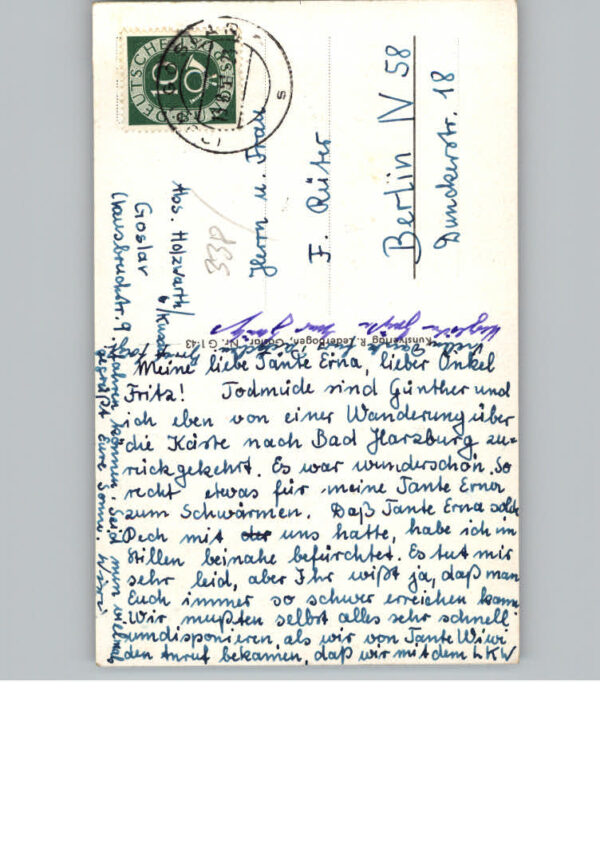 DEUTSCHE BUNDESPOST
10
GOSLAR
Herrn u. Frau
F. Rüter
Berlin IV 58
Dunckerstr. 18
338
Abs. Holzwarth
Goslar
Kunstverlag R. Lederbogen, Goslar, Nr. G 143
Meine liebe Tante Erna, lieber Onkel
Fritz! Todmüde sind Günther und
ich eben von einer Wanderung über
die Käste nach Bad Harzburg zu=
rückgekehrt. Es war wunderschön. So
recht etwas für meine Tante Erna
zum Schwärmen. Daß Tante Erna solch
Pech mit uns hatte, habe ich im
Stillen beinahe befürchtet. Es tut mir
sehr leid, aber Ihr wißt ja, daß man
Euch immer so schwer erreichen kann
Wir mußten selbst alles sehr schnell
umdisponieren, als wir von Tante Wiwi
den Anruf bekamen, daß wir mit dem LKW
fahren können. Seid nun vielmals
gegrüßt Eure